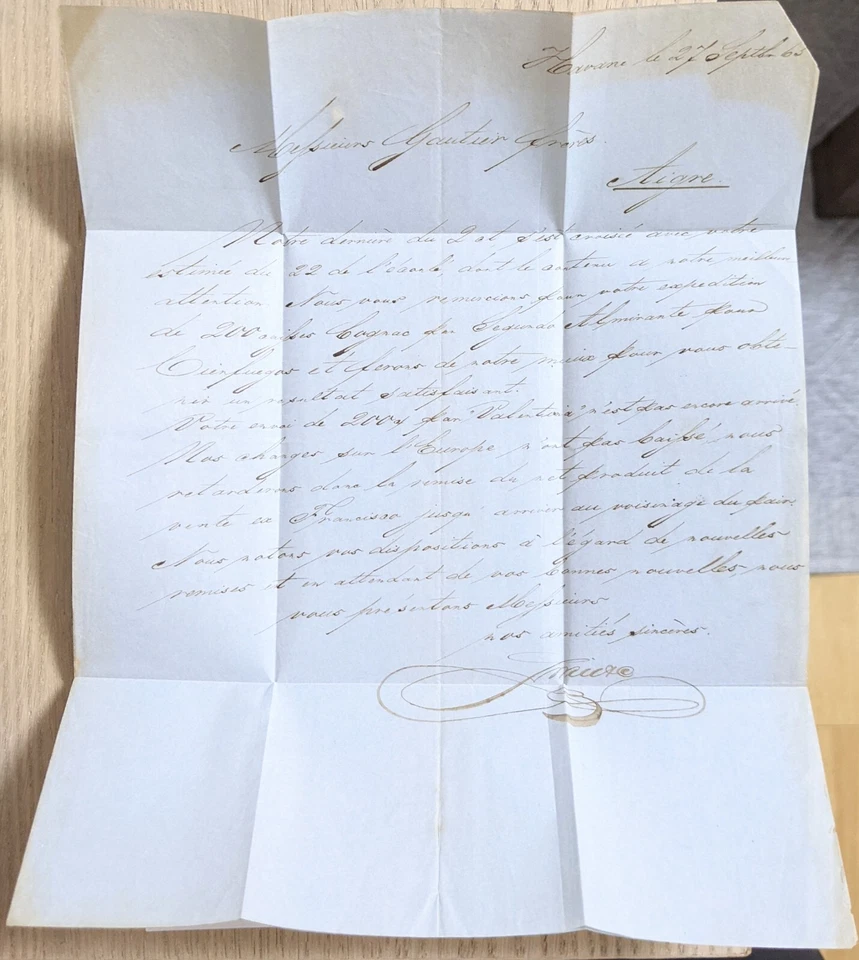 Havane le 27 Septbr 63
Messieurs Gautier frères.
Aigre.
Notre dernière du 2 ct s'est croisée avec votre
estimée du 22 de l'écoulé, dont le contenu a notre meilleure
attention. Nous vous remercions pour votre expedition
de 200 caisses Cognac par Segundo Almirante pour
Cienfuegos et ferons de notre mieux pour vous obte-
nir un resultat satisfaisant.
Votre envoi de 200 par "Valentina" n'est pas encore arrivé.
Nos changes sur l'Europe n'ont pas baissé, nous
retarderons donc la remise du net produit de la
vente ex Francisco jusqu'arriver au voisinage du pair.
Nous notons vos dispositions à l'égard de nouvelles
remises et en attendant de vos bonnes nouvelles, nous
vous présentons Messieurs
nos amitiés sincères.